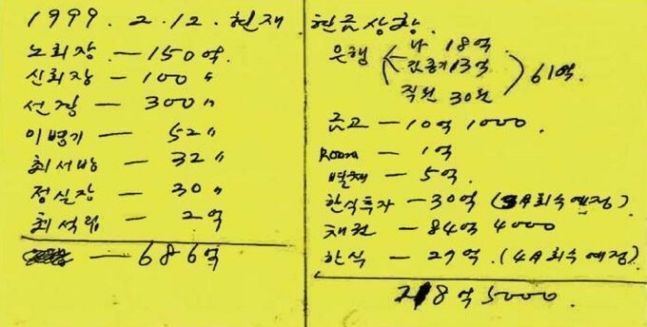 1999. 2. 12. 현재
노회장 — 150억.
신회장 — 100 〃
선장 — 300 〃
이병기 — 52 〃
최서방 — 32 〃
정실장 — 30 〃
최석림 — 2억
— 686억
현금상황.
은행
나 18억.
13억
직원 30억
61억.
금고 — 10억 1000.
Room — 1억
별채 — 5억.
한식투자 — 30억 (3월회수예정)
채권 — 84억 4000
한식 — 27억. (4월회수예정)
218억 5000.